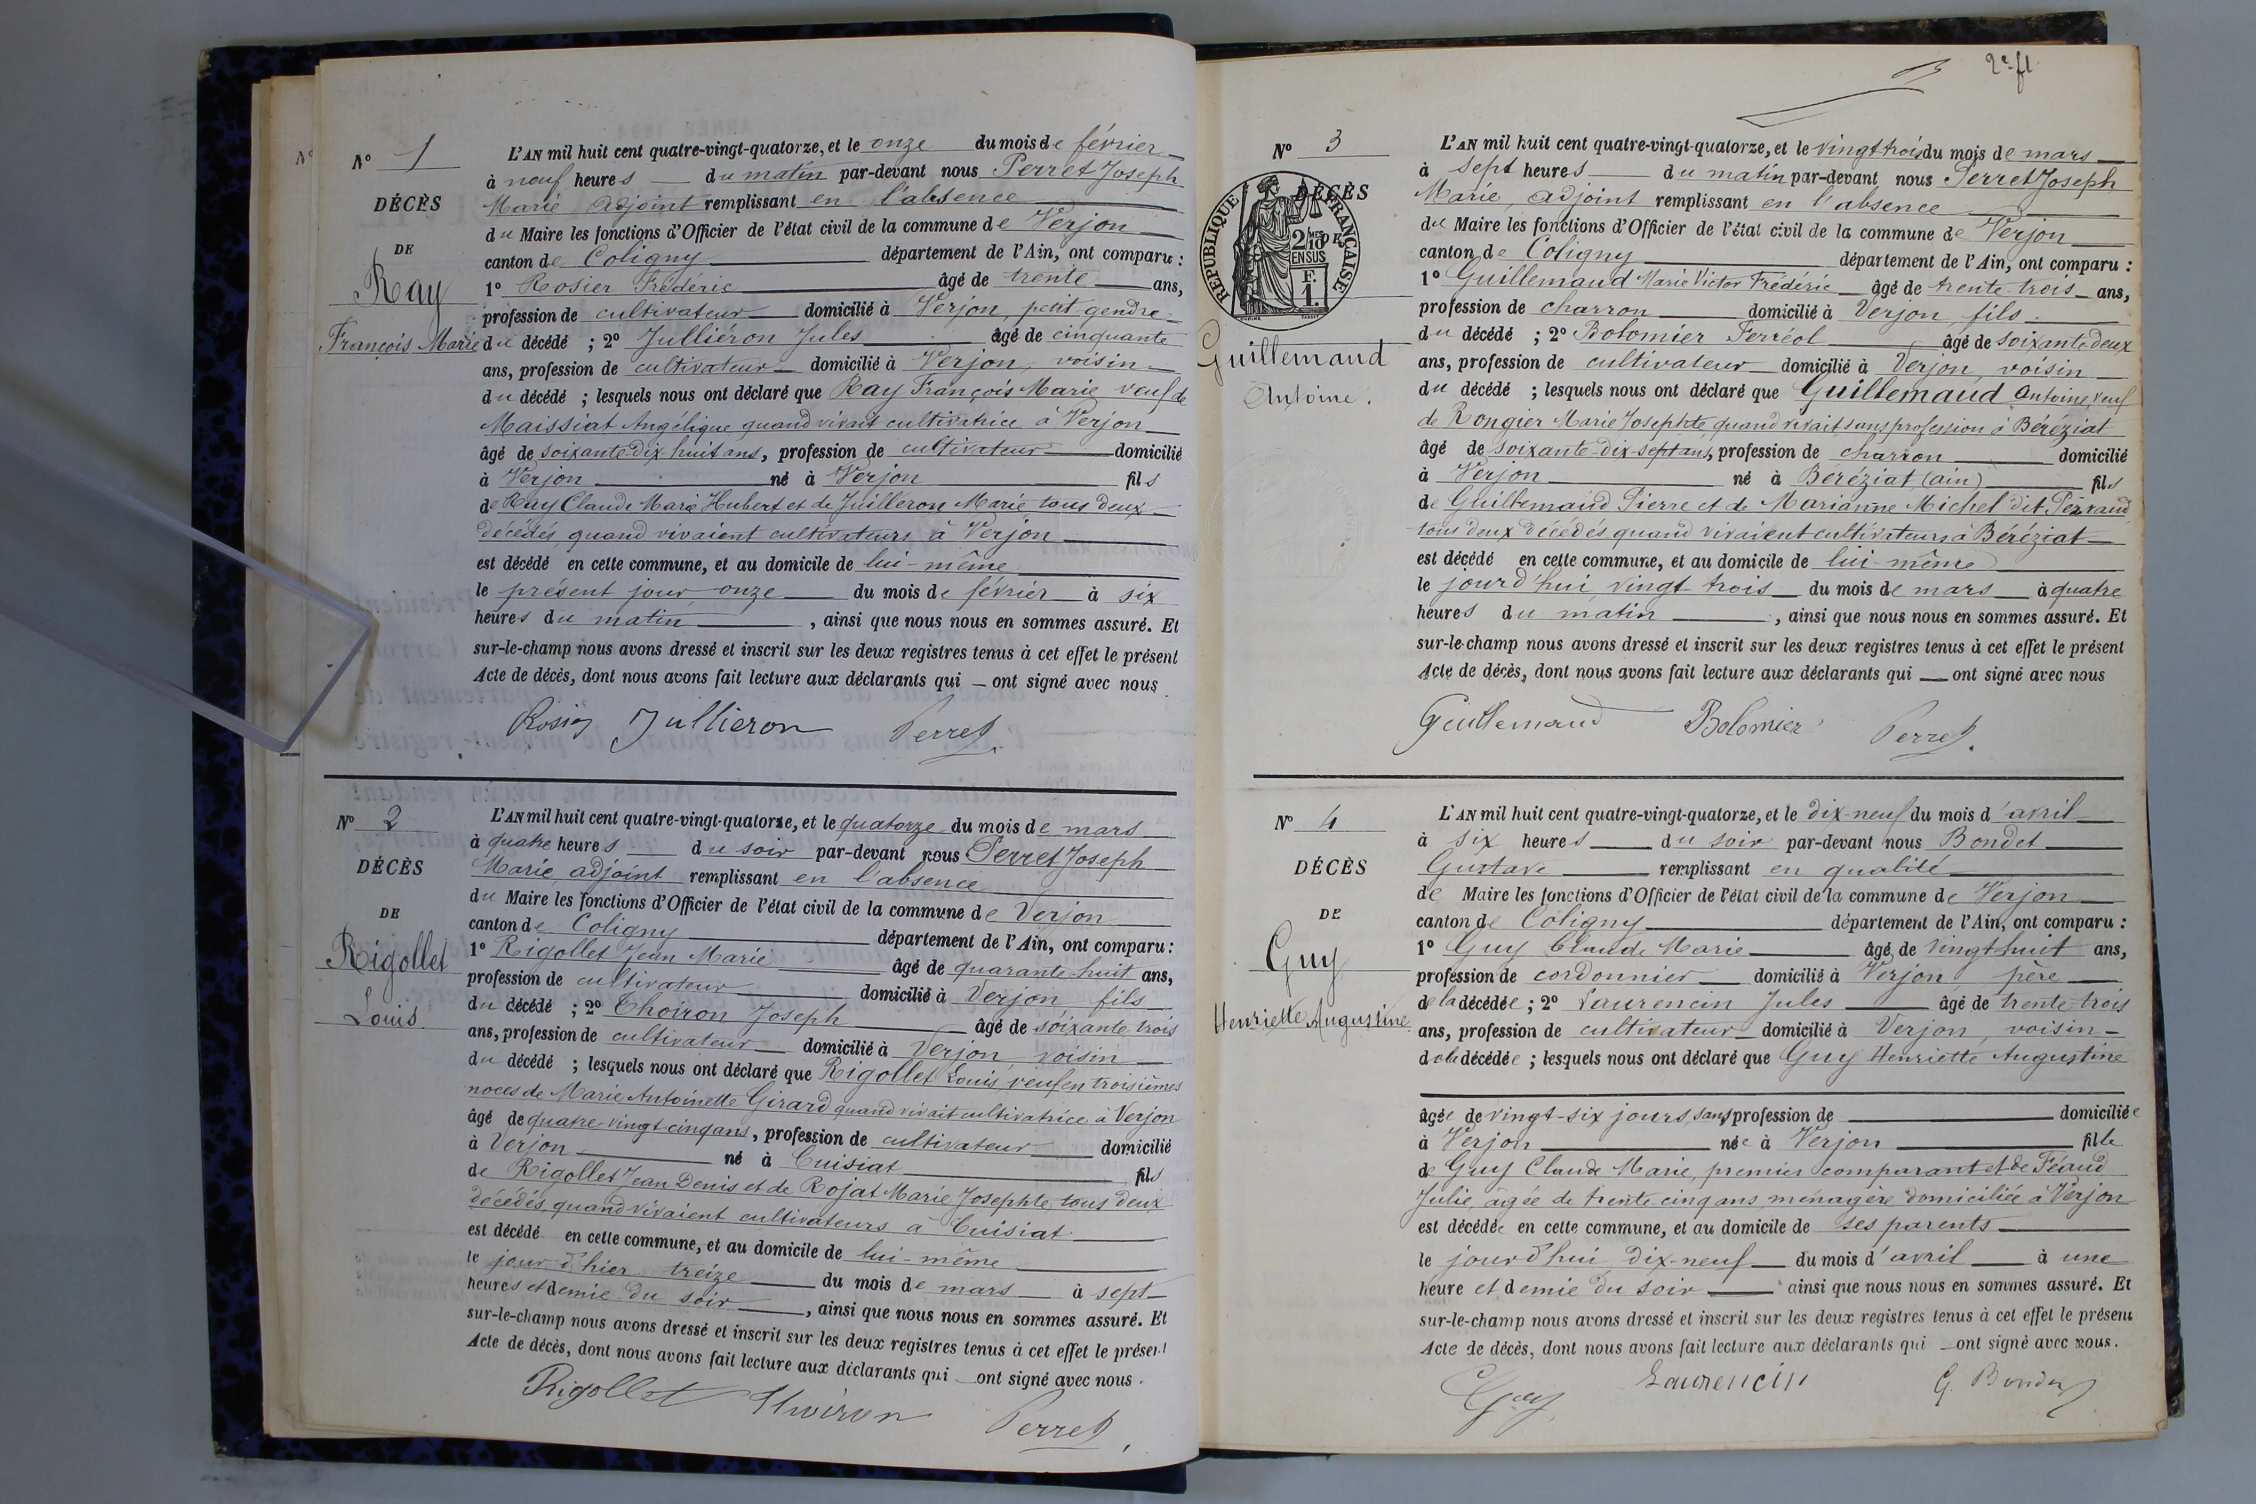 N° 1
DÉCÈS
DE
Ray
François Marie
L'AN mil huit cent quatre-vingt-quatorze, et le onze du mois de février
à neuf heures du matin par-devant nous Perret Joseph
Marie adjoint remplissant en l'absence
du Maire les fonctions d'Officier de l'état civil de la commune de Verjon
canton de Coligny département de l'Ain, ont comparu :
1° Rosier Frédéric âgé de trente ans,
profession de cultivateur domicilié à Verjon, petit gendre
du décédé ; 2° Julliéron Jules âgé de cinquante
ans, profession de cultivateur domicilié à Verjon, voisin
du décédé ; lesquels nous ont déclaré que Ray François Marie veuf de
Maissiat Angélique quand vivait cultivatrice à Verjon
âgé de soixante-dix-huit ans, profession de cultivateur domicilié
à Verjon né à Verjon fils
de Ray Claude Marie Hubert et de Juilleron Marie tous deux
décédés, quand vivaient cultivateurs à Verjon
est décédé en cette commune, et au domicile de lui-même
le présent jour onze du mois de février à six
heures du matin, ainsi que nous nous en sommes assuré. Et
sur-le-champ nous avons dressé et inscrit sur les deux registres tenus à cet effet le présent
Acte de décès, dont nous avons fait lecture aux déclarants qui ont signé avec nous.
Rosier Jullieron Perret
N° 2
DÉCÈS
DE
Rigollet
Louis
L'AN mil huit cent quatre-vingt-quatorze, et le quatorze du mois de mars
à quatre heures du soir par-devant nous Perret Joseph
Marie, adjoint remplissant en l'absence
du Maire les fonctions d'Officier de l'état civil de la commune de Verjon
canton de Coligny département de l'Ain, ont comparu :
1° Rigollet Jean Marie âgé de quarante-huit ans,
profession de cultivateur domicilié à Verjon, fils
du décédé ; 2° Choiron Joseph âgé de soixante trois
ans, profession de cultivateur domicilié à Verjon, voisin
du décédé ; lesquels nous ont déclaré que Rigollet Louis, veuf en troisièmes
noces de Marie Antoinette Girard quand vivait cultivatrice à Verjon
âgé de quatre-vingt-cinq ans, profession de cultivateur domicilié
à Verjon né à Cuisiat fils
de Rigollet Jean Denis et de Rojat Marie Josephte, tous deux
décédés, quand vivaient cultivateurs à Cuisiat
est décédé en cette commune, et au domicile de lui-même
le jour d'hier treize du mois de mars à sept
heures et demie du soir, ainsi que nous nous en sommes assuré. Et
sur-le-champ nous avons dressé et inscrit sur les deux registres tenus à cet effet le présent
Acte de décès, dont nous avons fait lecture aux déclarants qui ont signé avec nous.
Rigollet Choiron Perret
N° 3
DÉCÈS
DE
RÉPUBLIQUE FRANÇAISE
2/10 EN SUS
F. 1.
Guillemaud
Antoine.
L'AN mil huit cent quatre-vingt-quatorze, et le vingt trois du mois de mars
à sept heures du matin par-devant nous Perret Joseph
Marie, adjoint remplissant en l'absence
du Maire les fonctions d'Officier de l'état civil de la commune de Verjon
canton de Coligny département de l'Ain, ont comparu :
1° Guillemaud Marie Victor Frédéric âgé de trente-trois ans,
profession de charron domicilié à Verjon, fils
du décédé ; 2° Bolomier Ferréol âgé de soixante deux
ans, profession de cultivateur domicilié à Verjon, voisin
du décédé ; lesquels nous ont déclaré que Guillemaud Antoine, veuf
de Rongier Marie Josephte, quand vivait sans profession à Béréziat
âgé de soixante-dix-sept ans, profession de charron domicilié
à Verjon né à Béréziat (ain) fils
de Guillemaud Pierre et de Marianne Michel dit Perraud
tous deux décédés quand vivaient cultivateurs à Béréziat
est décédé en cette commune, et au domicile de lui-même
le jourd'hui vingt-trois du mois de mars à quatre
heures du matin, ainsi que nous nous en sommes assuré. Et
sur-le-champ nous avons dressé et inscrit sur les deux registres tenus à cet effet le présent
Acte de décès, dont nous avons fait lecture aux déclarants qui ont signé avec nous
Guillemaud Bolomier Perret
N° 4
DÉCÈS
DE
Guy
Henriette Augustine
L'AN mil huit cent quatre-vingt-quatorze, et le dix-neuf du mois d'avril
à six heures du soir par-devant nous Bondet
Gustave remplissant en qualité
de Maire les fonctions d'Officier de l'état civil de la commune de Verjon
canton de Coligny département de l'Ain, ont comparu :
1° Guy Claude Marie âgé de vingt-huit ans,
profession de cordonnier domicilié à Verjon, père
de la décédée ; 2° Laurencin Jules âgé de trente-trois
ans, profession de cultivateur domicilié à Verjon, voisin
de la décédée ; lesquels nous ont déclaré que Guy Henriette Augustine
âgée de vingt-six jours, sans profession de domiciliée
à Verjon née à Verjon fille
de Guy Claude Marie, premier comparant et de Féaud
Julie, âgée de trente-cinq ans, ménagère domiciliée à Verjon
est décédée en cette commune, et au domicile de ses parents
le jourd'hui dix-neuf du mois d'avril à une
heure et demie du soir ainsi que nous nous en sommes assuré. Et
sur-le-champ nous avons dressé et inscrit sur les deux registres tenus à cet effet le présent
Acte de décès, dont nous avons fait lecture aux déclarants qui ont signé avec nous.
Guy Laurencin G. Bondet